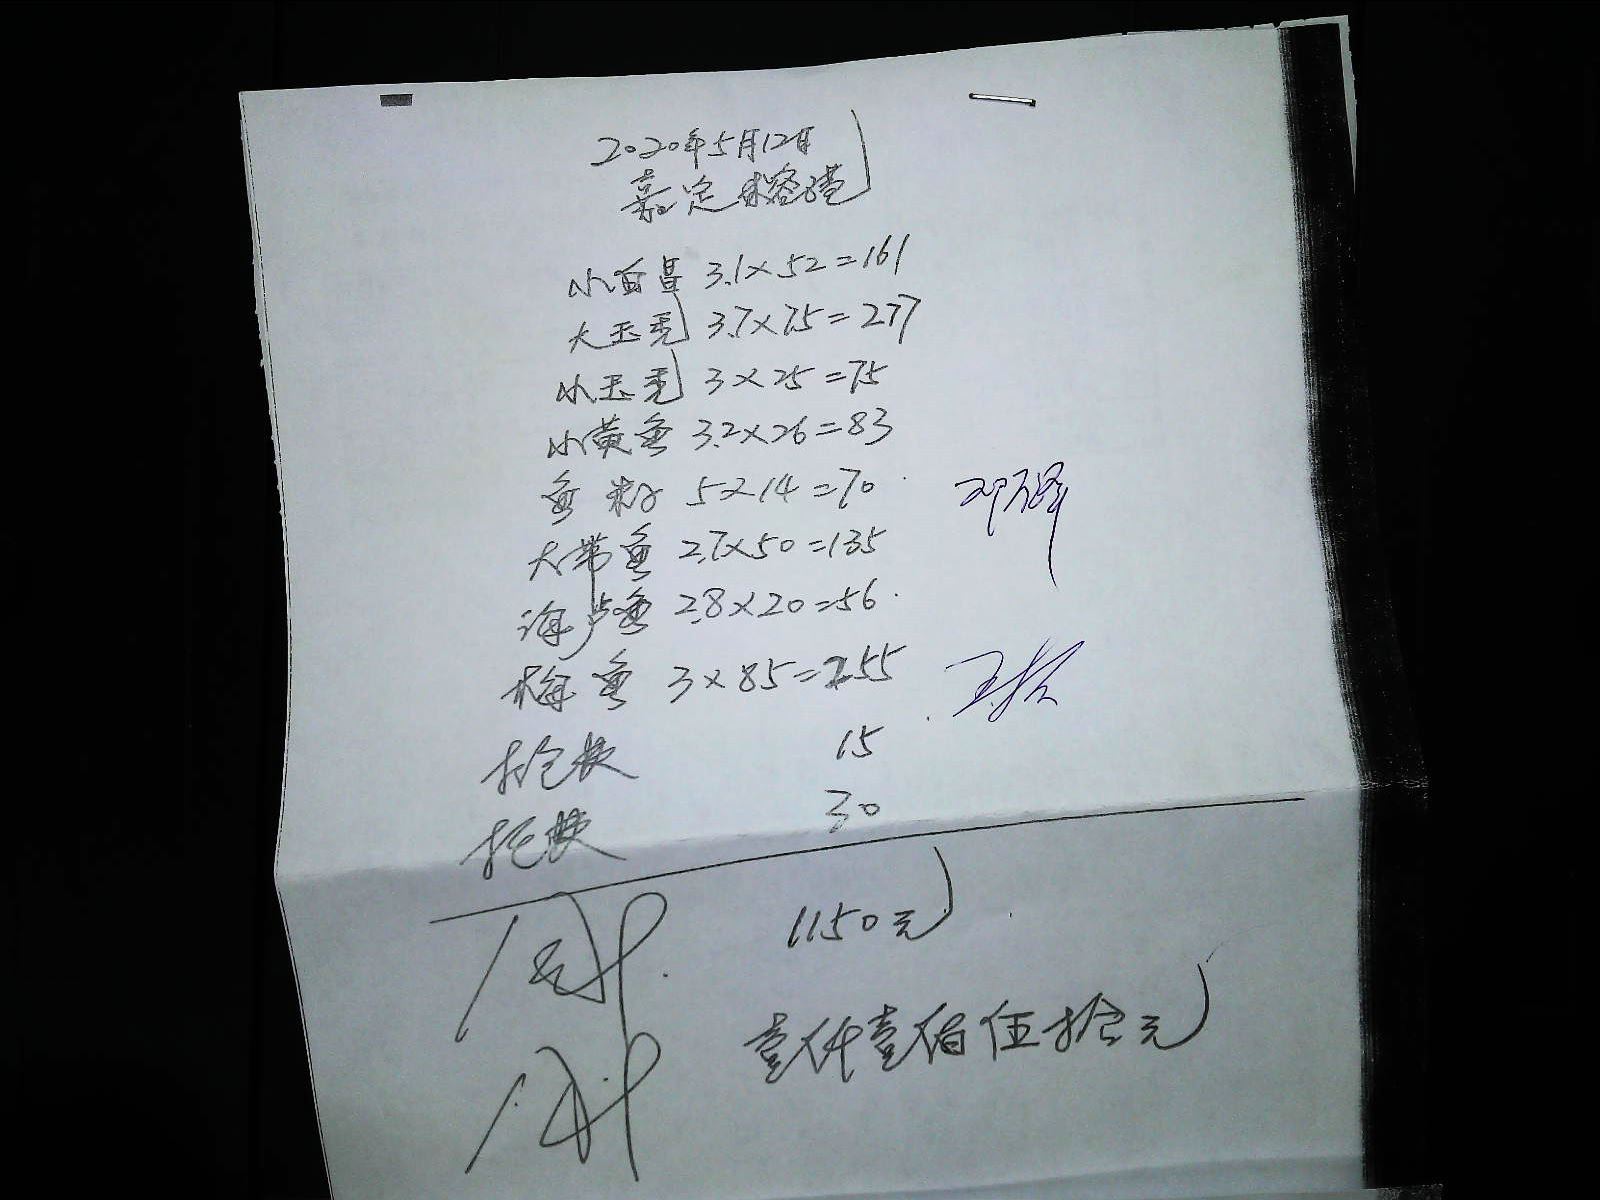 2020年5月12日
嘉定
小白 3.1×52=161
大玉秃 3.7×75=277
小玉秃 3×25=75
小黄鱼 3.2×26=83
鱼籽 5×14=70
大带鱼 2.7×50=135
海卢鱼 2.8×20=56
梅鱼 3×85=255
15
30
1150元
壹仟壹佰伍拾元